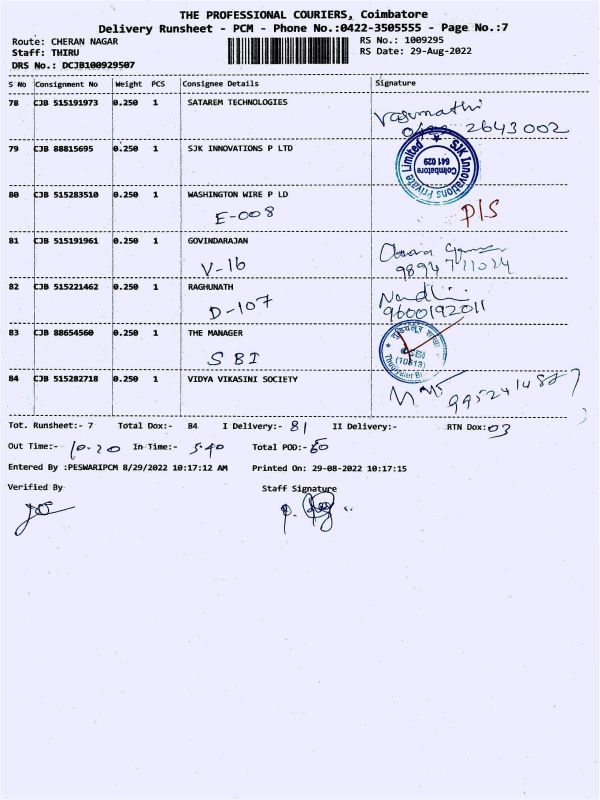 THE PROFESSIONAL COURIERS, Coimbatore
Delivery Runsheet - PCM - Phone No.:0422-3505555 - Page No.:7
Route: CHERAN NAGAR RS No.: 1009295
Staff: THIRU RS Date: 29-Aug-2022
DRS No.: DCJB100929507
S No Consignment No Weight PCS Consignee Details Signature
78 CJB 515191973 0.250 1 SATAREM TECHNOLOGIES Vasumathi
0422 2643002
79 CJB 88815695 0.250 1 SJK INNOVATIONS P LTD
SJK Innovations Private Limited
Coimbatore
641 029
80 CJB 515283510 0.250 1 WASHINGTON WIRE P LD
E-008 P/S
81 CJB 515191961 0.250 1 GOVINDARAJAN
V-16
82 CJB 515221462 0.250 1 RAGHUNATH Nandhi
D-107 9600192011
83 CJB 88654560 0.250 1 THE MANAGER
SBI
84 CJB 515282718 0.250 1 VIDYA VIKASINI SOCIETY
Tot. Runsheet:- 7 Total Dox:- 84 I Delivery:- 81 II Delivery:- RTN Dox:03
Out Time:- 10.20 In Time:- 5.40 Total POD:- 80
Entered By :PESWARIPCM 8/29/2022 10:17:12 AM Printed On: 29-08-2022 10:17:15
Verified By Staff Signature